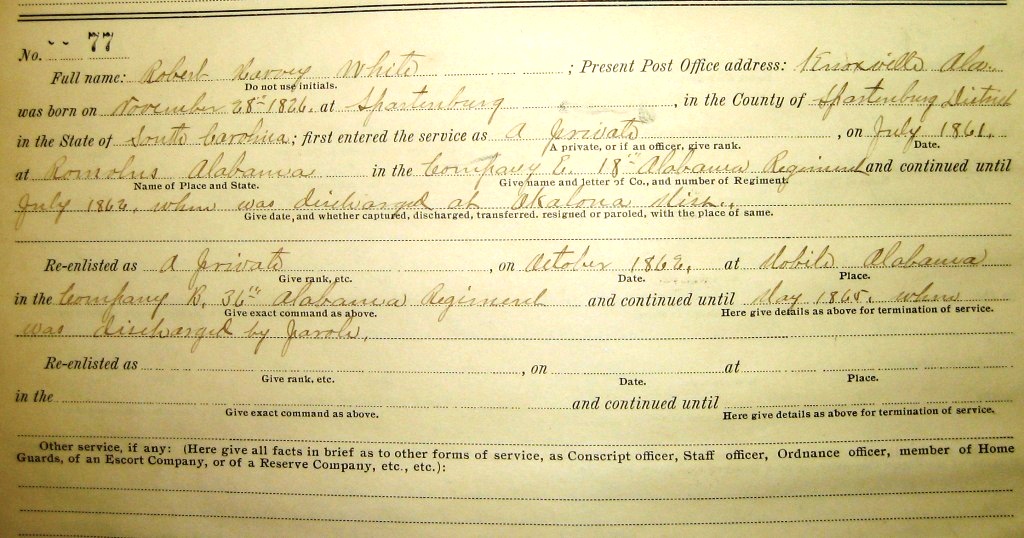 No. 77
Full name: Robert Harvey White ; Present Post Office address: Knoxville Ala.
Do not use initials.
was born on November 28th 1826. at Spartenburg , in the County of Spartenburg District
in the State of South Carolina; first entered the service as A private , on July 1861.
A private, or if an officer, give rank. Date.
at Romolus Alabama in the Company E. 18th Alabama Regiment and continued until
Name of Place and State. Give name and letter of Co., and number of Regiment.
July 1862. when was discharged at Okalona Miss.,
Give date, and whether captured, discharged, transferred. resigned or paroled, with the place of same.
Re-enlisted as A private , on October 1862, at Mobile Alabama
Give rank, etc. Date. Place.
in the Company B, 36th Alabama Regiment and continued until May 1865. when
Give exact command as above. Here give details as above for termination of service.
was discharged by parole,
Re-enlisted as , on at
Give rank, etc. Date. Place.
in the and continued until
Give exact command as above. Here give details as above for termination of service.
Other service, if any: (Here give all facts in brief as to other forms of service, as Conscript officer, Staff officer, Ordnance officer, member of Home
Guards, of an Escort Company, or of a Reserve Company, etc., etc.):